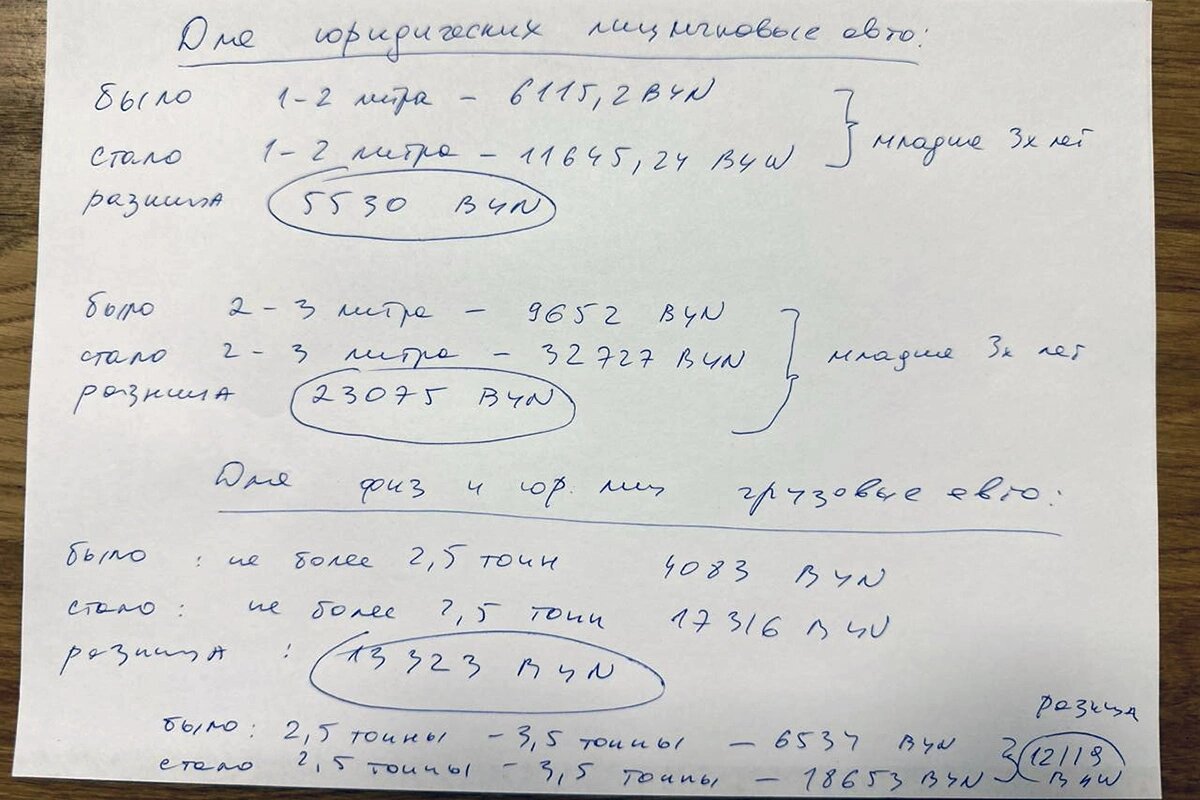 Для юридических лиц легковые авто:
было 1-2 литра - 6115,2 BYN
стало 1-2 литра - 11645,24 BYN
младше 3х лет
разница 5530 BYN
было 2-3 литра - 9652 BYN
стало 2-3 литра - 32727 BYN
младше 3х лет
разница 23075 BYN
Для физ и юр. лиц грузовые авто:
было : не более 2,5 тонн 4083 BYN
стало : не более 2,5 тонн 17316 BYN
разница : 13323 BYN
разница
было: 2,5 тонны - 3,5 тонны - 6534 BYN
12119 BYN
стало 2,5 тонны - 3,5 тонны - 18653 BYN